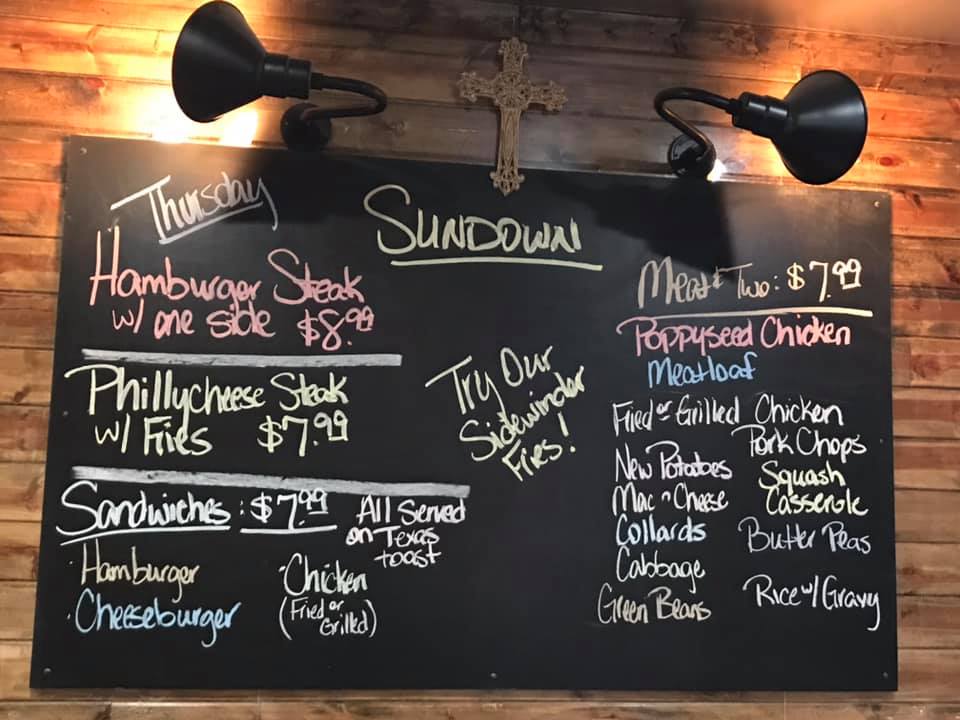 Thursday
SUNDOWN
Hamburger Steak
w/ one side $8.99
Phillycheese Steak
w/ Fries $7.99
Sandwiches: $7.99
All Served
on Texas
toast
Hamburger
Cheeseburger
Chicken
(Fried or
Grilled)
Try Our
Sidewinder
Fries!
Meat & Two: $7.99
Poppyseed Chicken
Meatloaf
Fried or Grilled Chicken
Pork Chops
New Potatoes
Mac n Cheese
Collards
Cabbage
Green Beans
Squash
Casserole
Butter Peas
Rice w/ Gravy